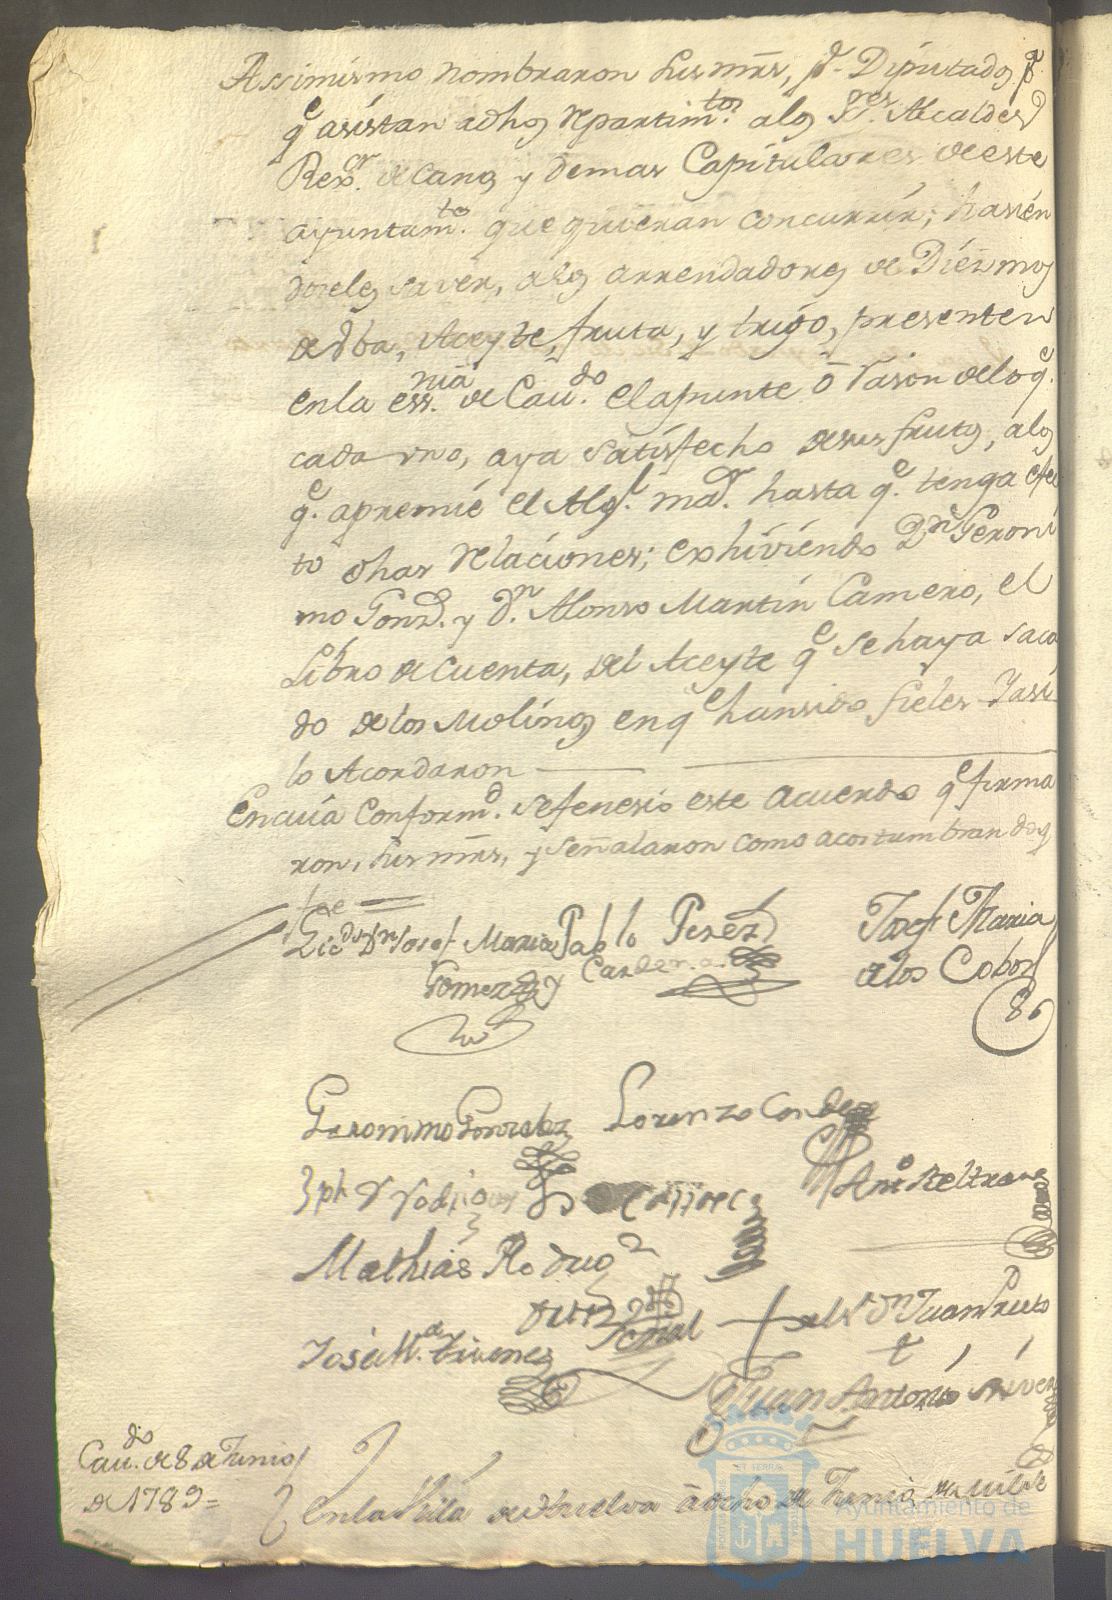 Assimismo nombraron sus mrs, pr. Diputados pa.
qe asistan a dhos repartimtos. a los Sres. Alcaldes,
Rexor. decanos y demas Capitulares de este
ayuntamto. que quieran concurrir; hasien
doseles saver, a los arrendadores de Diezmos
de Vba, Aceyte, fruta, y trigo, presenten
en la essnia. de Cavdo. el apunte ô rason de lo qe.
cada vno, aya satisfecho de sus frutos, a los
qe. apremie el Algl. mayr. hasta qe. tenga efec
to dhas relaciones; exhiviendo Dn. Geroni
mo Gonz. y dn. Alonso Martin Camero, el
Libro de cuenta, del Aceyte qe se haya saca
do de los Molinos en qe han sido fieles Y asi
lo Acordaron
En cuia conformd. se fenesio este acuerdo qe firma
ron, sus mrs, y señalaron como acostumbran doy
fee =
Licdo Dn Josef Maria Pablo Perez Josef Maria
Gomez Cardenas de los Cobos
86
Geronimo Gonzalez Lorenzo Conde
Jph Rodriguez Anto Beltran
Mathias Rodrigz
+ del Sr dn Juan Prieto
José Ma. Ximenez
Juan Antonio
Cavdo. de 8 de Junio
de 1789=
En la Villa de Huelva à ocho de Junio de mil
Ayuntamiento de
HUELVA